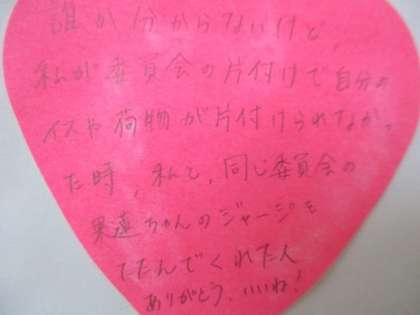 誰か分からないけど、
私が委員会の片付けで自分の
イスや荷物が片付けられなかっ
た時、私と、同じ委員会の
果蓮ちゃんのジャージを
てたんでくれた人
ありがとう、いいね!